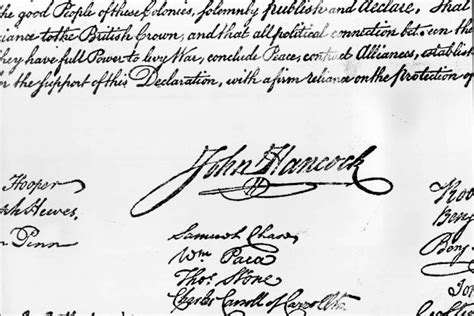 the good People of these Colonies, solemnly publish and declare, That
iance to the British Crown, and that all political connection between the
they have full Power to levy War, conclude Peace, contract Alliances, establish
for the support of this Declaration, with a firm reliance on the Protection of
John Hancock
Hooper
ph Hewes,
n Penn
Samuel Chase
Wm Paca
Thos. Stone
Charles Carroll of Carrollton
Rob
Benj
Benj
Jo